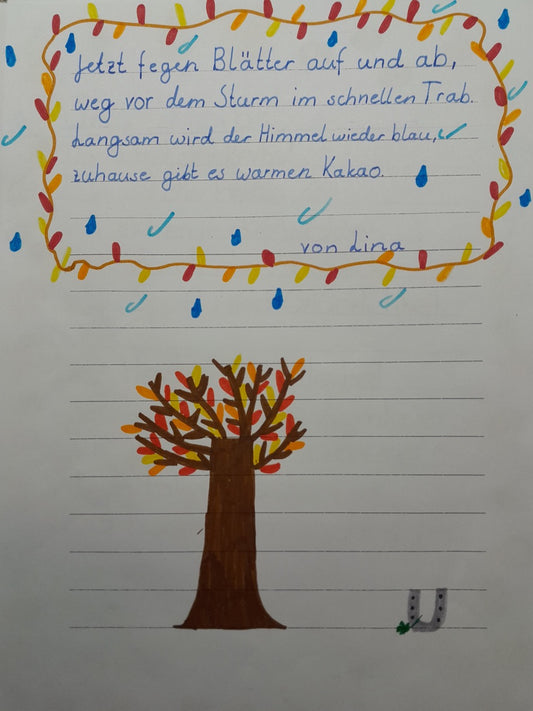 Jetzt fegen Blätter auf und ab,
weg vor dem Sturm im schnellen Trab.
Langsam wird der Himmel wieder blau,
zuhause gibt es warmen Kakao.
von Lina